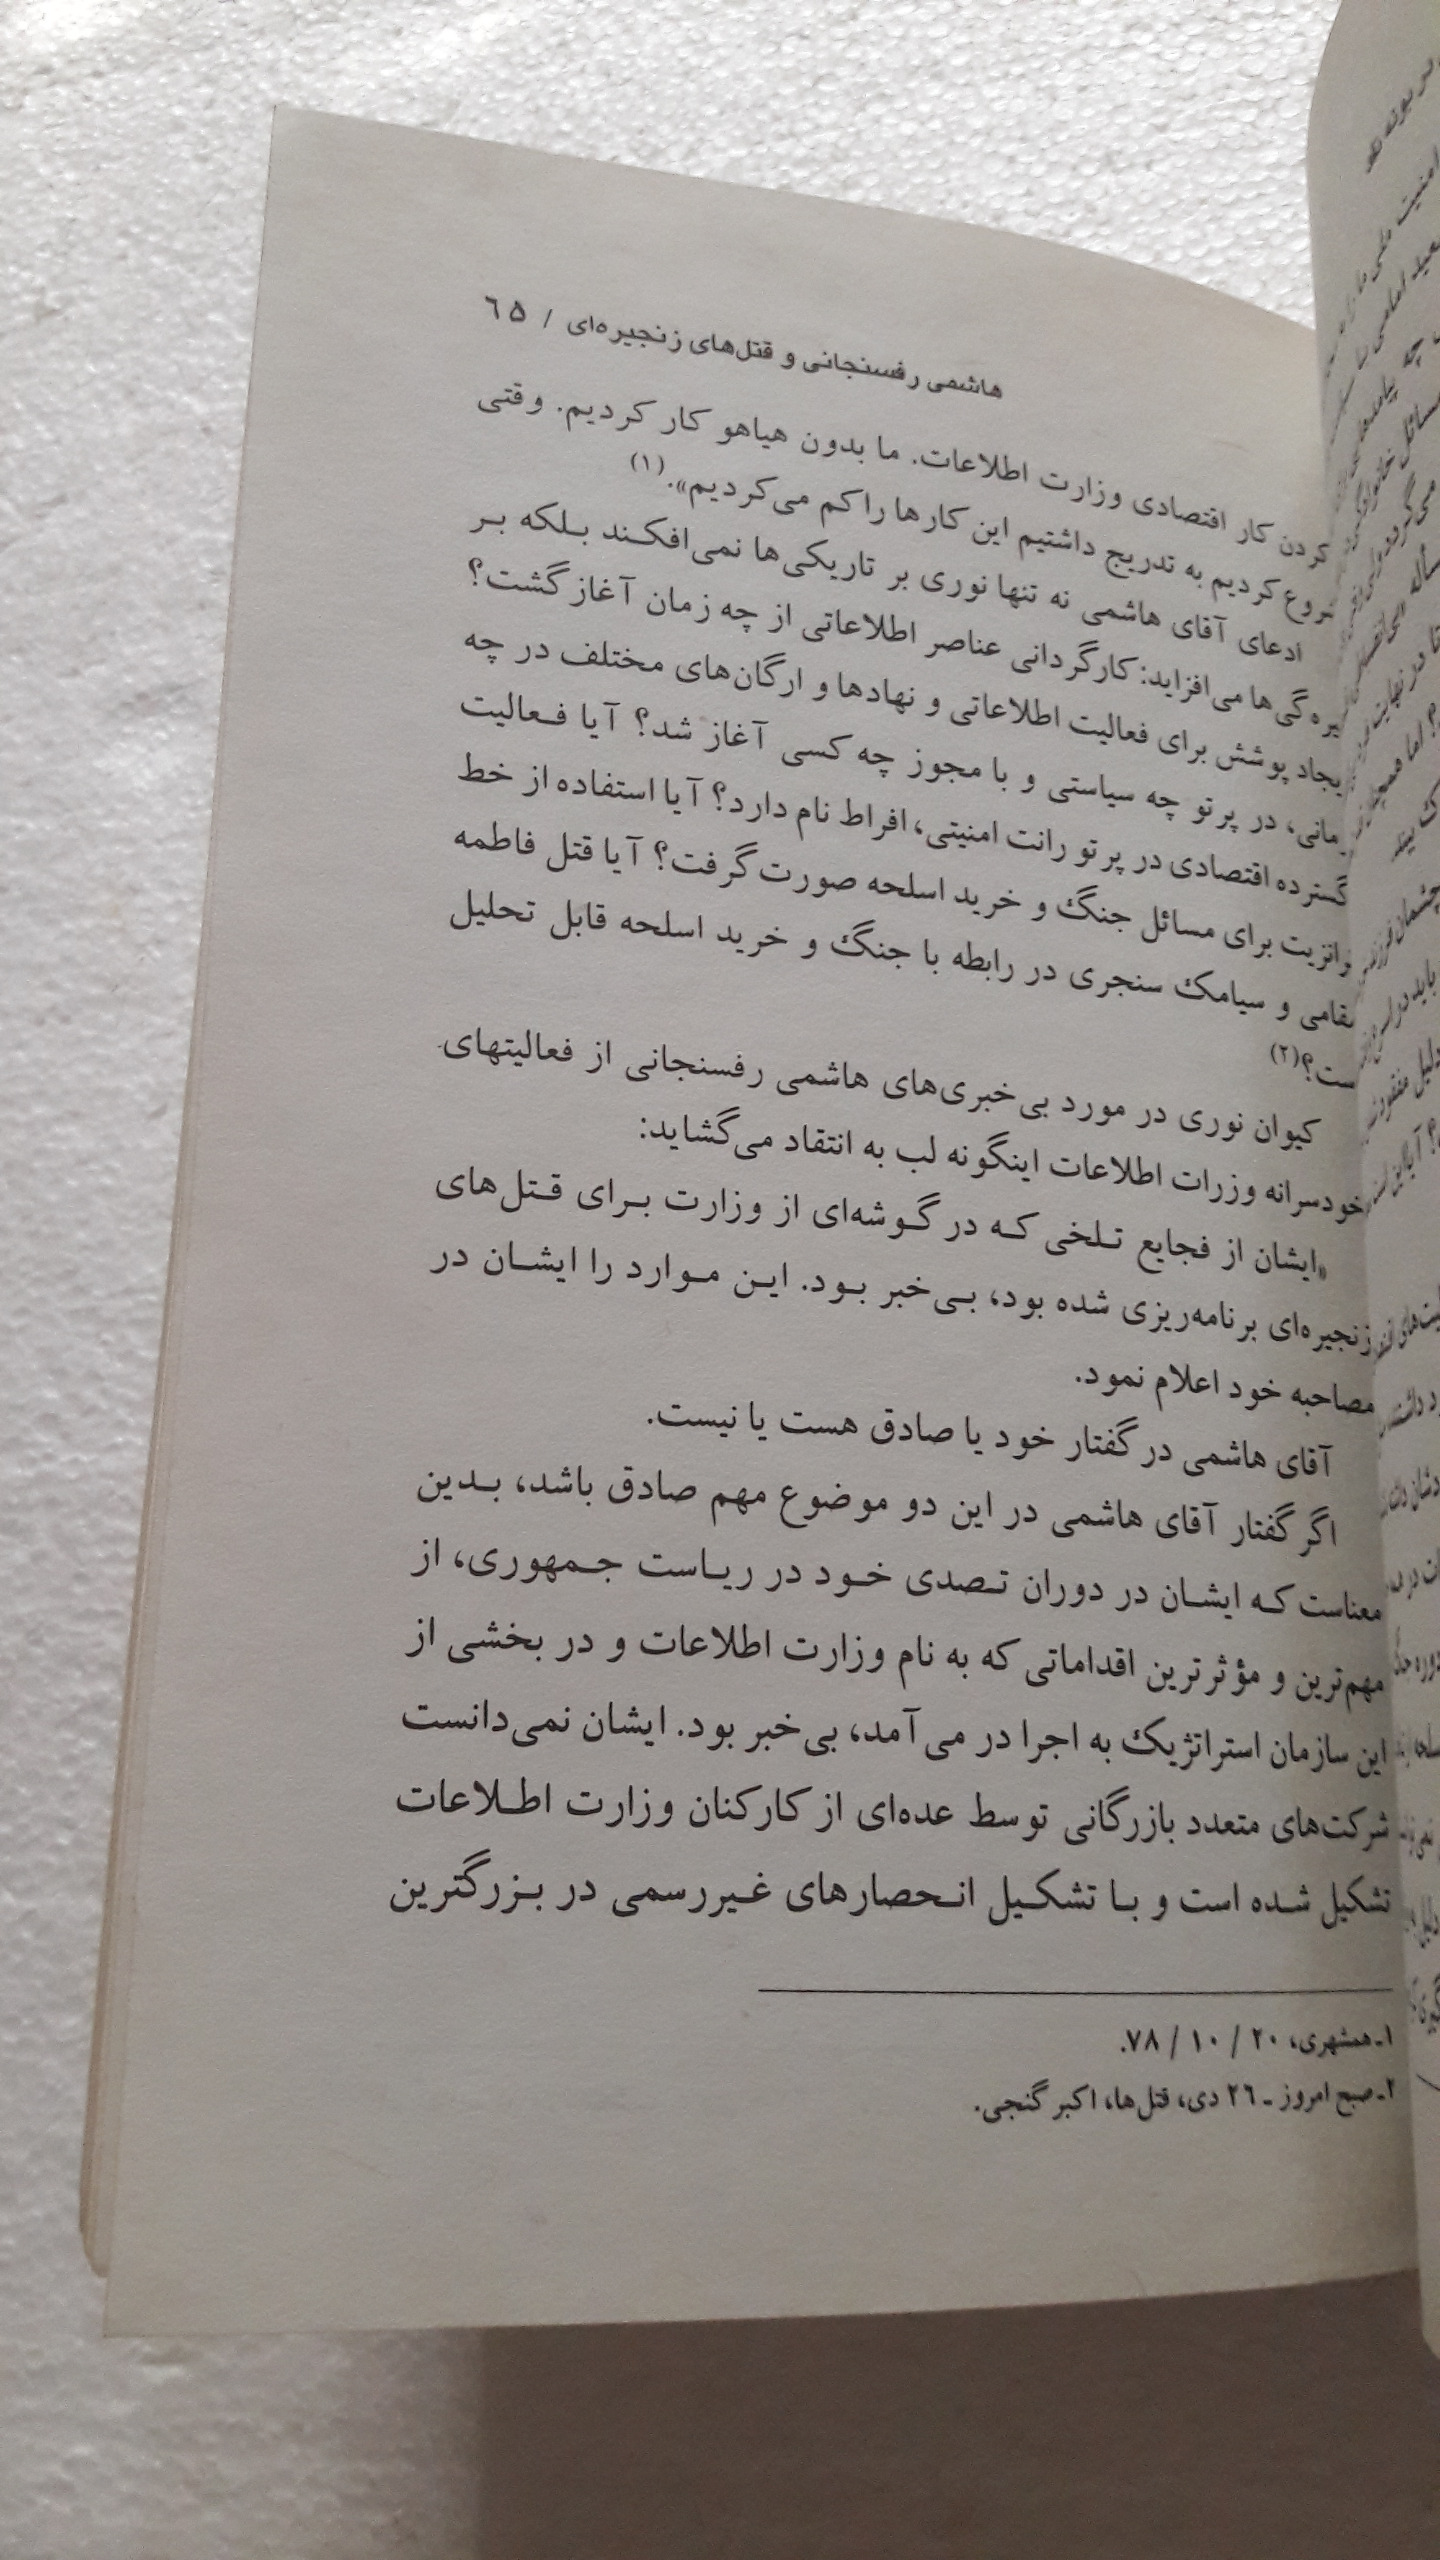 هاشمی رفسنجانی و قتل‌های زنجیره‌ای / ٦٥
کردن کار اقتصادی وزارت اطلاعات. ما بدون هیاهو کار کردیم. وقتی
شروع کردیم به تدریج داشتیم این کارها را کم می‌کردیم». (۱)
ادعای آقای هاشمی نه تنها نوری بر تاریکی‌ها نمی‌افکند بلکه بر
تیره‌گی‌ها می‌افزاید: کارگردانی عناصر اطلاعاتی از چه زمان آغاز گشت؟
ایجاد پوشش برای فعالیت اطلاعاتی و نهادها و ارگان‌های مختلف در چه
زمانی، در پرتو چه سیاستی و با مجوز چه کسی آغاز شد؟ آیا فعالیت
گسترده اقتصادی در پرتو رانت امنیتی، افراط نام دارد؟ آیا استفاده از خط
ترانزیت برای مسائل جنگ و خرید اسلحه صورت گرفت؟ آیا قتل فاطمه
قائم‌مقامی و سیامک سنجری در رابطه با جنگ و خرید اسلحه قابل تحلیل
است؟(۲)
کیوان نوری در مورد بی‌خبری‌های هاشمی رفسنجانی از فعالیتهای
خودسرانه وزرات اطلاعات اینگونه لب به انتقاد می‌گشاید:
«ایشان از فجایع تلخی که در گوشه‌ای از وزارت برای قتل‌های
زنجیره‌ای برنامه‌ریزی شده بود، بی‌خبر بود. این موارد را ایشان در
مصاحبه خود اعلام نمود.
آقای هاشمی در گفتار خود یا صادق هست یا نیست.
اگر گفتار آقای هاشمی در این دو موضوع مهم صادق باشد، بدین
معناست که ایشان در دوران تصدی خود در ریاست جمهوری، از
مهم‌ترین و مؤثرترین اقداماتی که به نام وزارت اطلاعات و در بخشی از
این سازمان استراتژیک به اجرا در می‌آمد، بی‌خبر بود. ایشان نمی‌دانست
شرکت‌های متعدد بازرگانی توسط عده‌ای از کارکنان وزارت اطلاعات
تشکیل شده است و با تشکیل انحصارهای غیررسمی در بزرگترین
۱ـ همشهری، ۲۰ / ۱۰ / ۷۸.
۲ـ صبح امروز ـ ۲٦ دی، قتل‌ها، اکبر گنجی.